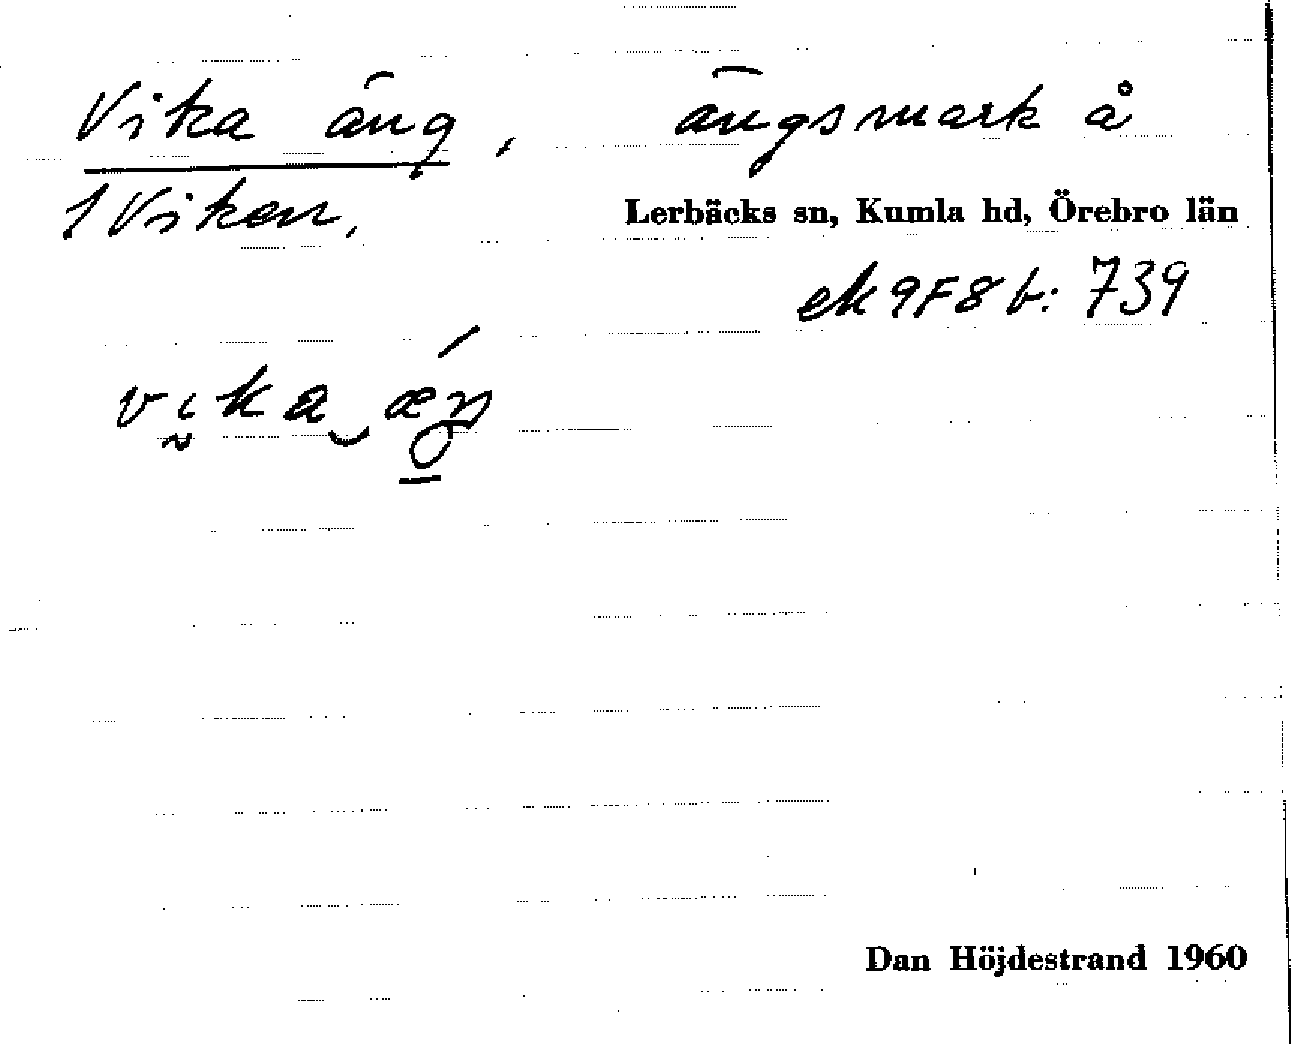 Vika äng, ängsmark å
1 Viken,
Lerbäcks sn, Kumla hd, Örebro län
ek 9F8b: 739
Dan Höjdestrand 1960